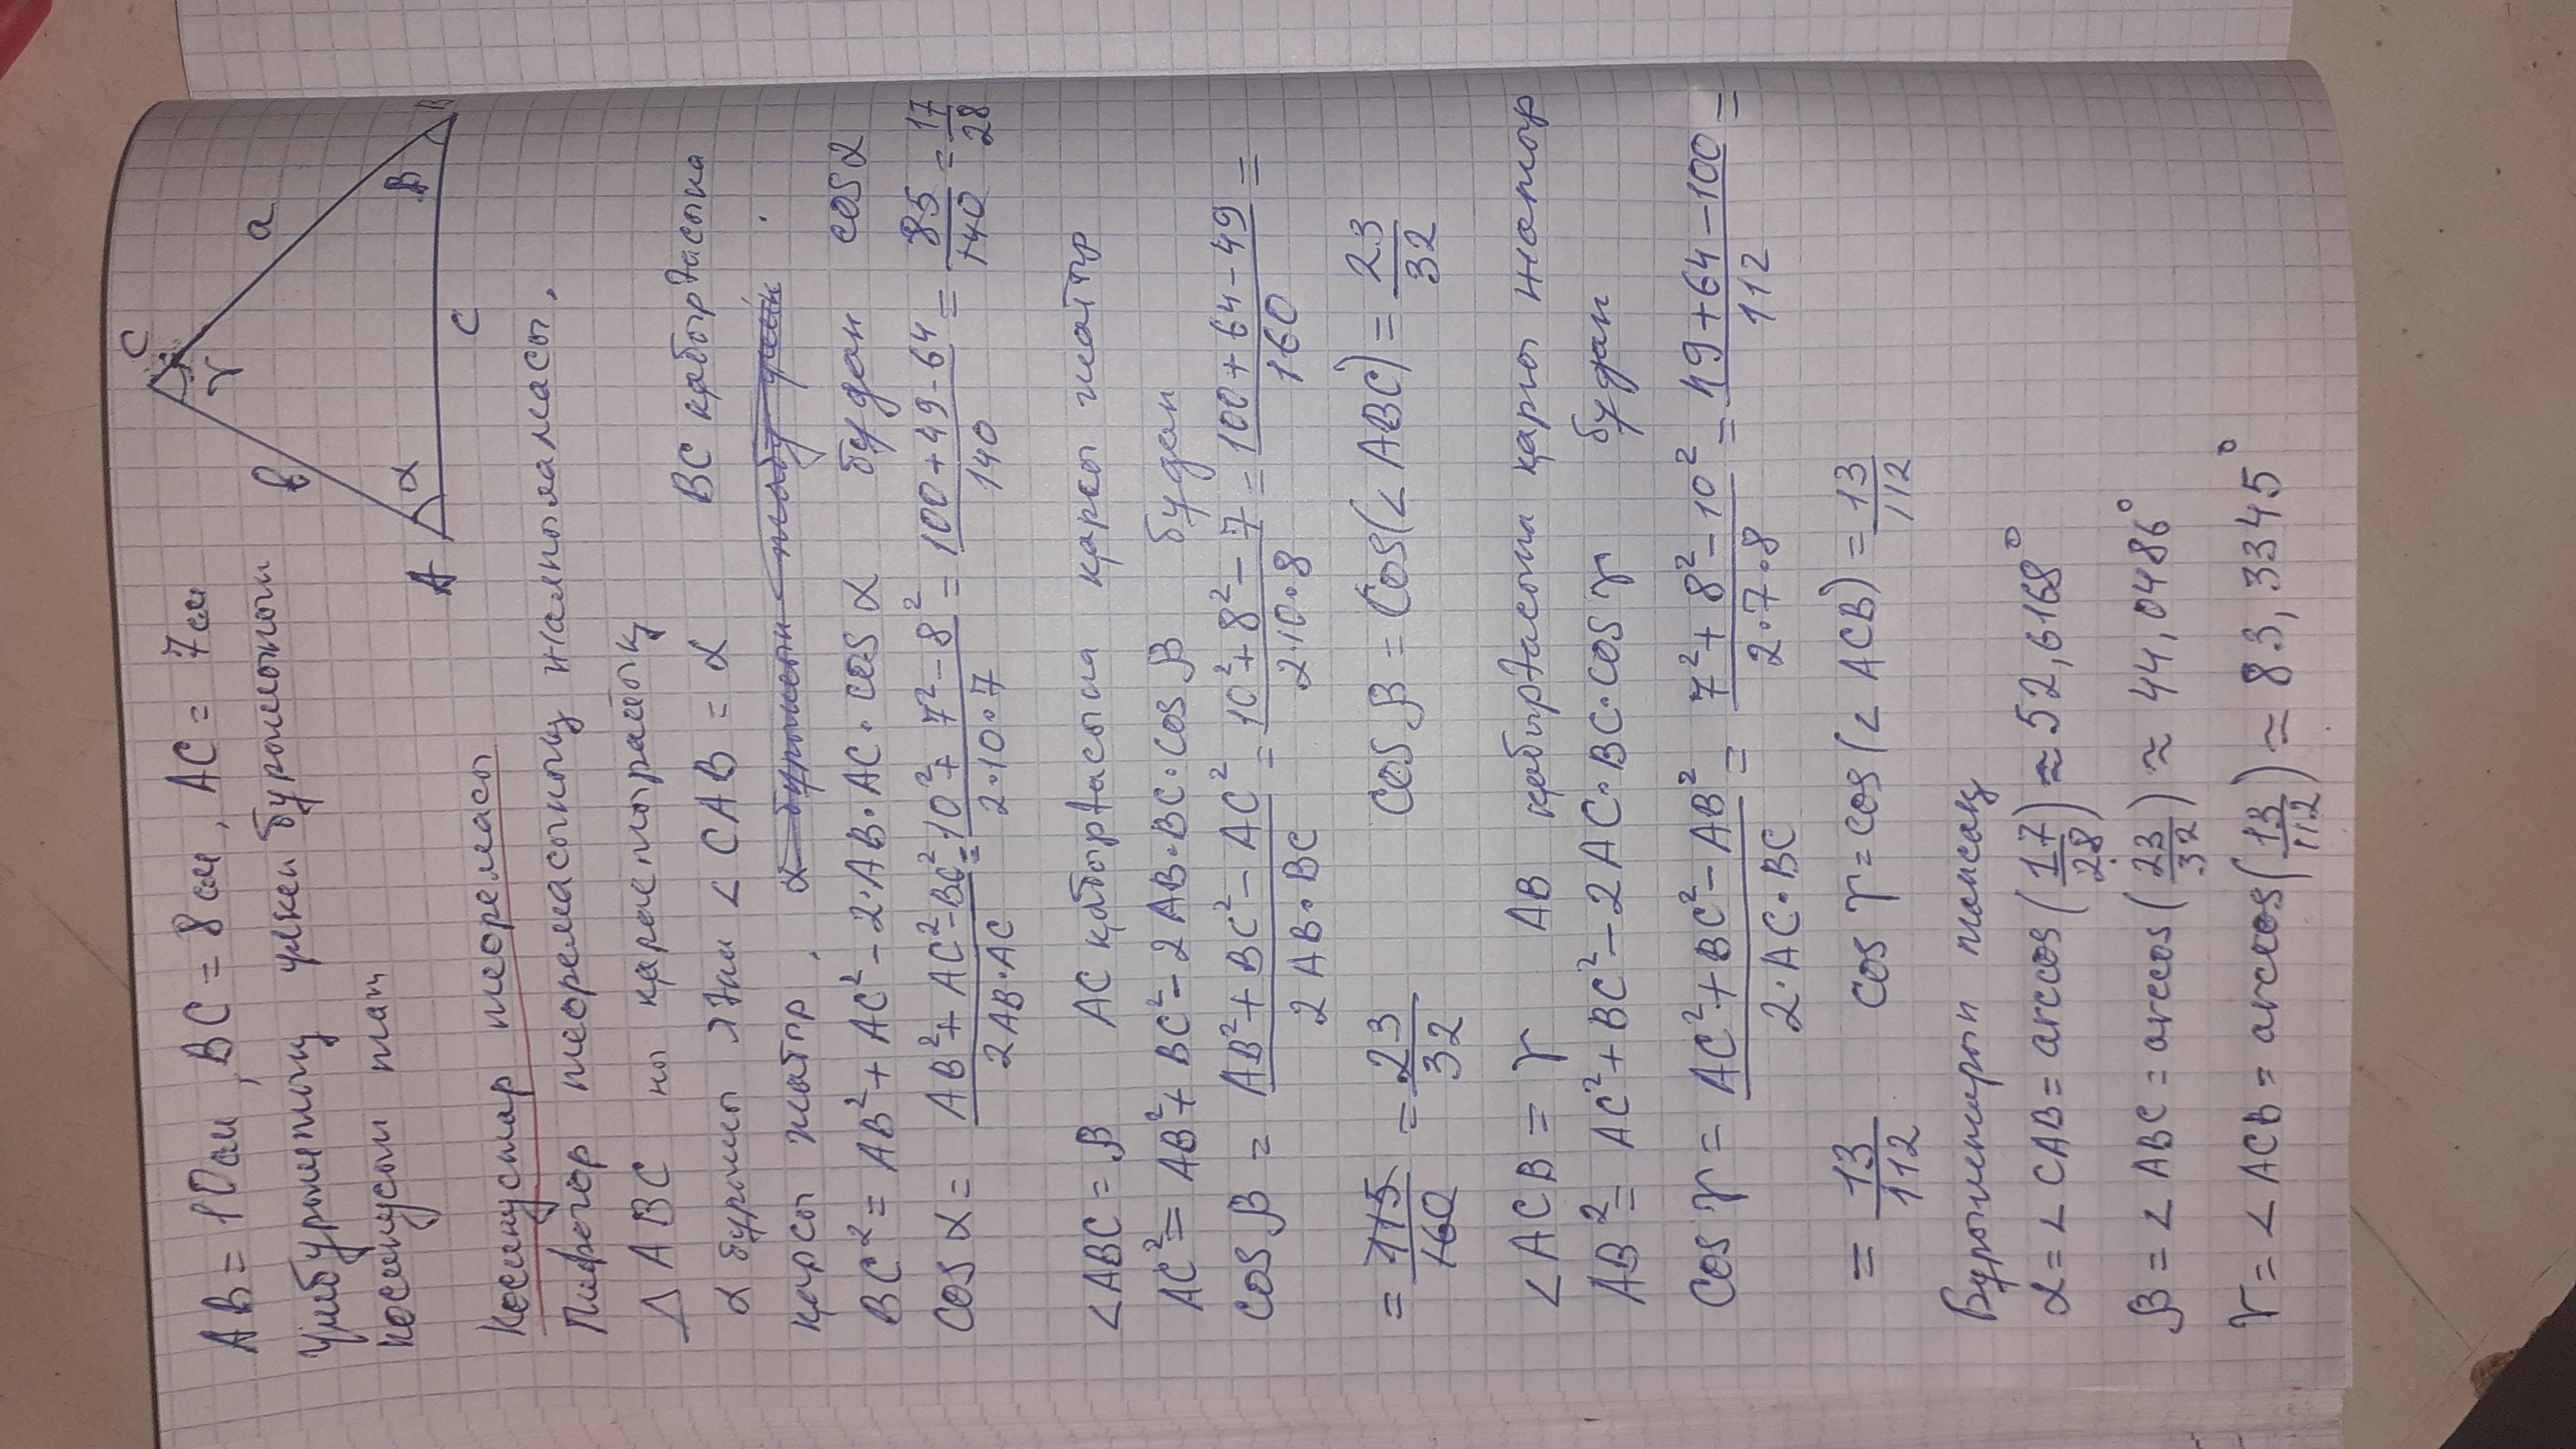 AB = 10см, BC = 8см, AC = 7см
Үшбұрыштың үлкен бұрышының
косинусын тап
C
γ
a
b
α
β
A
B
c
Косинустар теоремасы
Пифагор теоремасының жалпыламасы.
△ ABC ны қарастырайық
α бұрышы яғни ∠ CAB = α BC қабырғасына
қарсы жатыр. бұдан cos α
BC² = AB² + AC² - 2·AB·AC·cos α
cos α = (AB² + AC² - BC²)/(2AB·AC) = (10² + 7² - 8²)/(2·10·7) = (100 + 49 - 64)/140 = 85/140 = 17/28
∠ABC = β AC қабырғасына қарсы жатыр
AC² = AB² + BC² - 2AB·BC·cos β бұдан
cos β = (AB² + BC² - AC²)/(2AB·BC) = (10² + 8² - 7)/(2·10·8) = (100 + 64 - 49)/160 =
= 115/160 = 23/32 cos β = Cos(∠ ABC) = 23/32
∠ ACB = γ AB қабырғасына қарсы жатыр
AB² = AC² + BC² - 2AC·BC·cos γ бұдан
Cos γ = (AC² + BC² - AB²)/(2·AC·BC) = (7² + 8² - 10²)/(2·7·8) = (49 + 64 - 100)/112 =
= 13/112 Cos γ = cos(∠ ACB) = 13/112
Бұрыштарын тапсақ
α = ∠ CAB = arccos(17/28) ≈ 52,6168°
β = ∠ ABC = arccos(23/32) ≈ 44,0486°
γ = ∠ ACB = arccos(13/112) ≈ 83,3345°